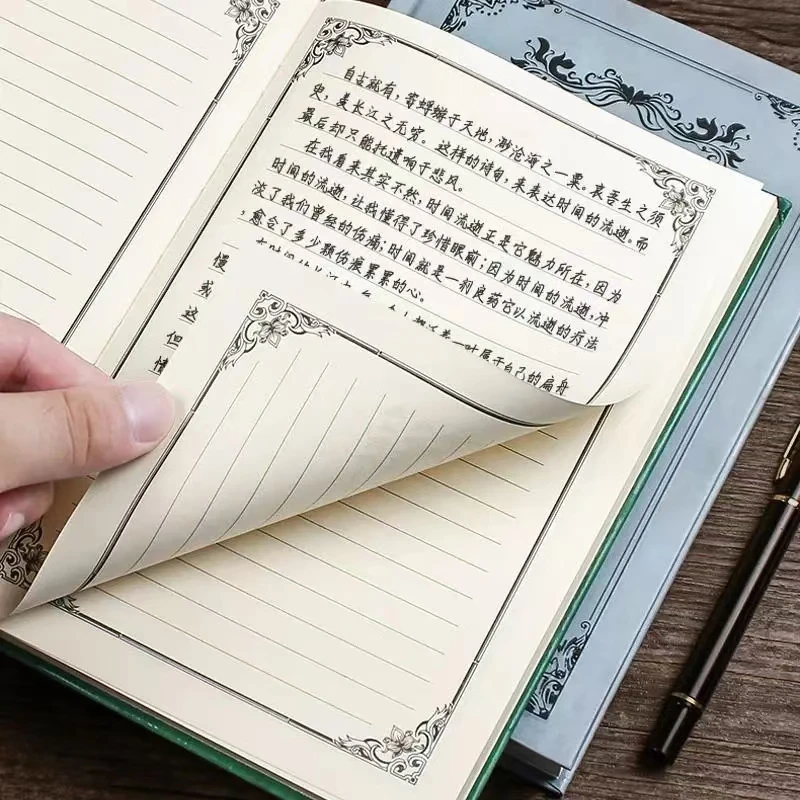 自古就有，寄蜉蝣于天地，渺沧海之一粟。哀吾生之须
臾，羡长江之无穷。这样的诗句，来表达时间的流逝。而
最后却只能托遗响于悲风。
在我看来其实不然，时间流逝正是它魅力所在，因为
时间的流逝，让我懂得了珍惜眼前；因为时间的流逝，冲
淡了我们曾经的伤痛；时间就是一剂良药它以流逝的疗法
，愈合了多少颗伤痕累累的心。
叶属于自己的扁舟
慢
或
这
但
情